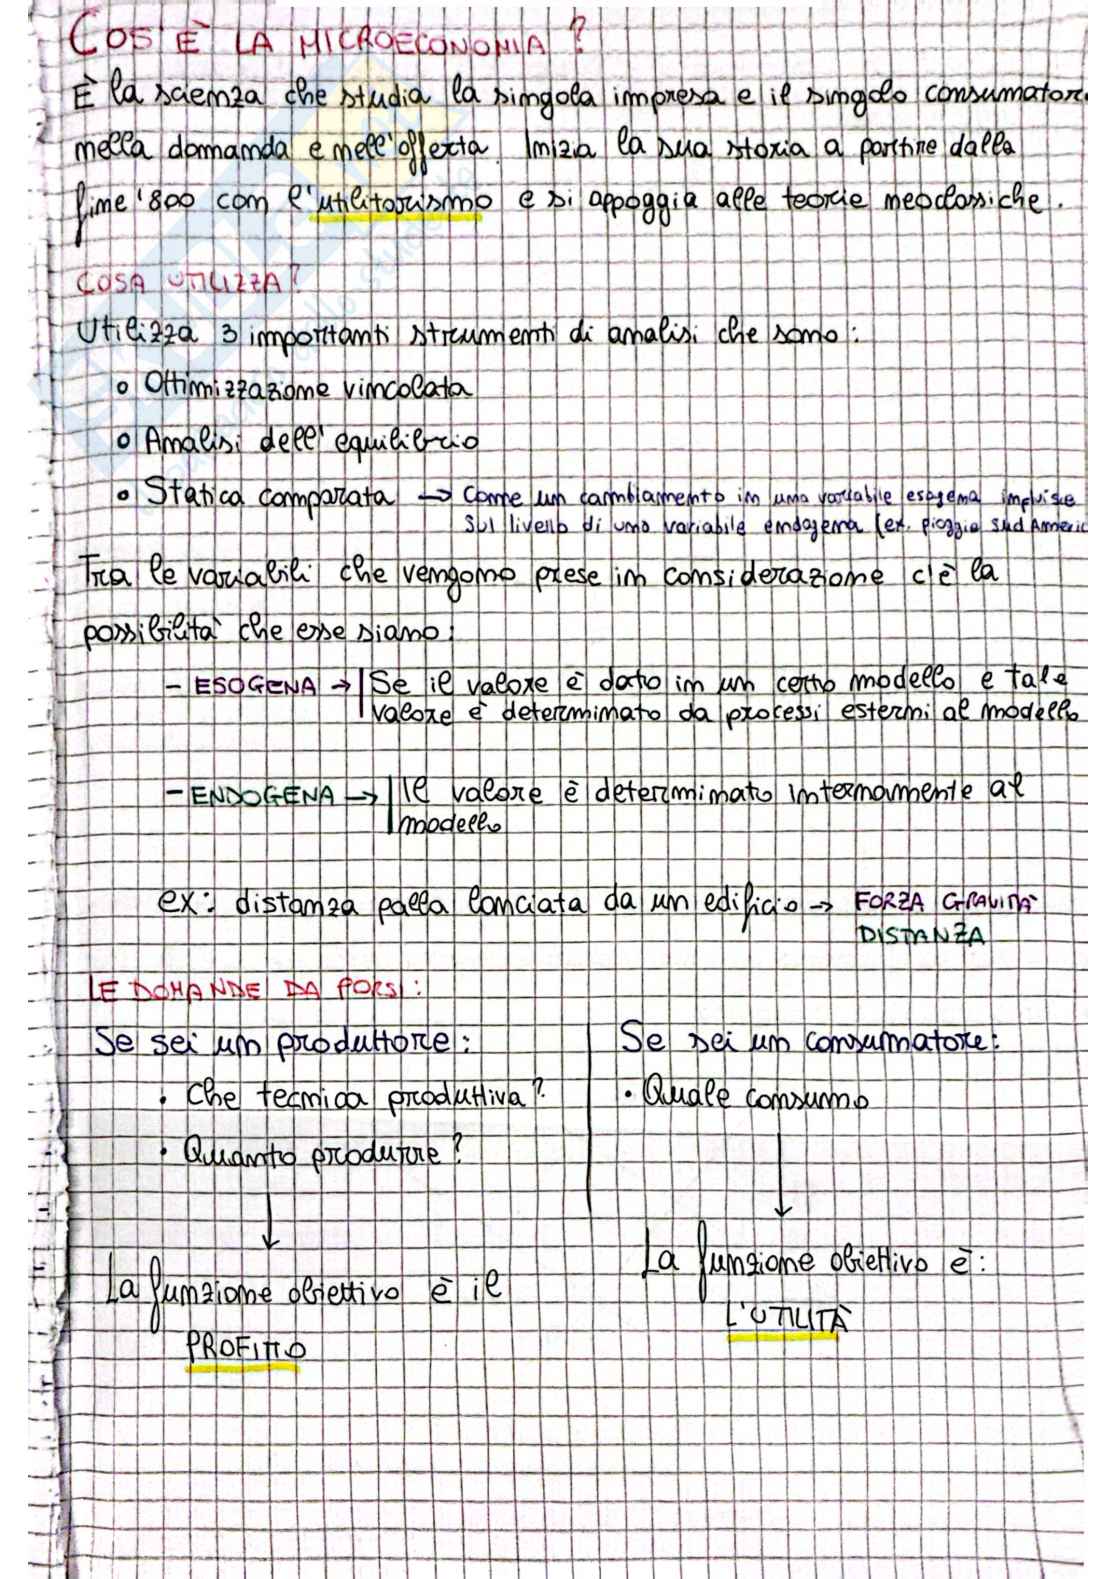 COS'È LA MICROECONOMIA?
È la scienza che studia la singola impresa e il singolo consumatore
nella domanda e nell'offerta. Inizia la sua storia a partire dalla
fine '800 con l'utilitarismo e si appoggia alle teorie neoclassiche.
COSA UTILIZZA?
Utilizza 3 importanti strumenti di analisi che sono:
o Ottimizzazione vincolata
o Analisi dell'equilibrio
o Statica comparata → Come un cambiamento in una variabile esogena influisce
sul livello di una variabile endogena (ex. pioggia Sud Americ
Tra le variabili che vengono prese in considerazione c'è la
possibilità che esse siano:
- ESOGENA → Se il valore è dato in un certo modello e tale
valore è determinato da processi esterni al modello
- ENDOGENA → Il valore è determinato internamente al
modello
ex: distanza palla lanciata da un edificio → FORZA GRAVITÀ
DISTANZA
LE DOMANDE DA PORSI:
Se sei un produttore:
• Che tecnica produttiva?
• Quanto produrre?
La funzione obiettivo è il
PROFITTO
Se sei un consumatore:
• Quale consumo
La funzione obiettivo è:
L'UTILITÀ